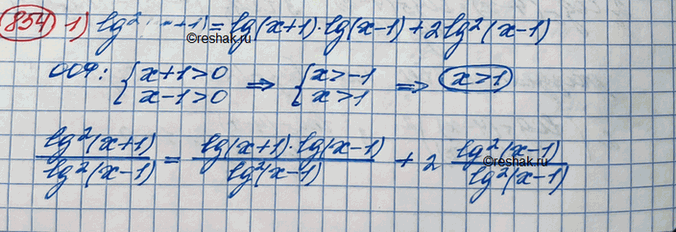 854 1) lg² (x+1) = lg(x+1)·lg(x-1) + 2lg²(x-1)
©reshak.ru
ОДЗ: { x+1>0 x-1>0 ⇒ { x>-1 x>1 ⇒ x>1
lg²(x+1)/lg²(x-1) = lg(x+1)·lg(x-1)/lg²(x-1) + 2 lg²(x-1)/lg²(x-1)
©reshak.ru